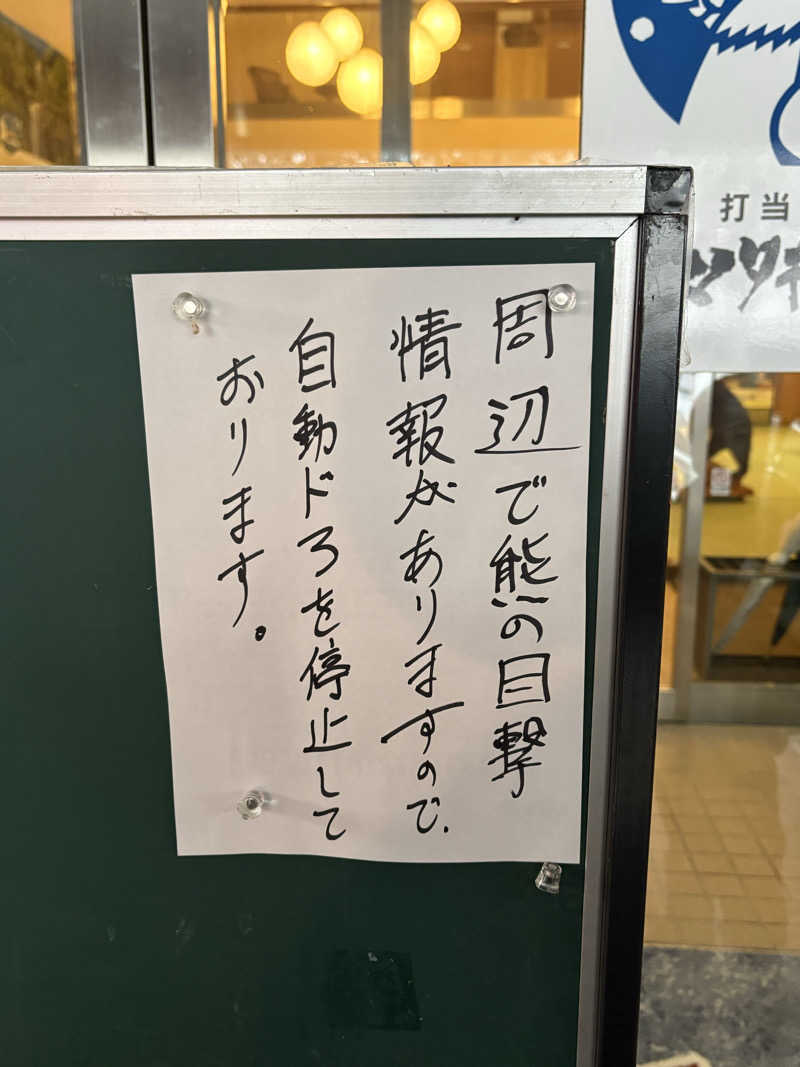 周辺で熊の目撃
情報がありますので、
自動ドアを停止して
おります。
打当
マタギ